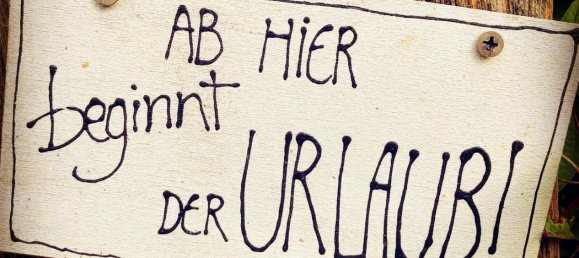 AB HiER
beginnt
DER URLAUB!